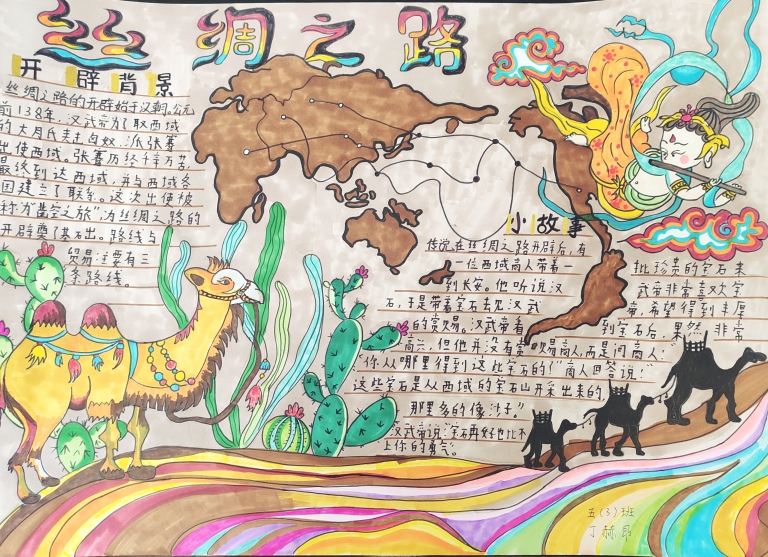 丝绸之路
开辟背景
丝绸之路的开辟始于汉朝。公元
前138年,汉武帝为了联西域
的大月氏夹击匈奴,派张骞
出使西域。张骞历经千辛万苦,
最终到达西域,并与西域各
国建立了联系。这次出使被
称为"凿空之旅",为丝绸之路的
开辟奠了基石出。路线与
贸易:主要有三
条路线。
小故事
传说,在丝绸之路开辟后,有
一位西域商人带着一 批珍贵的宝石来
到长安。他听说汉 武帝非常喜欢宝
石,于是带着宝石去见汉武 帝,希望得到丰厚
的赏赐。汉武帝看 到宝石后,果然非常
高兴,但他并没有赏赐商人,而是问商人:"
你从哪里得到这些宝石的("商人回答说:"
这些宝石是从西域的宝石山开采出来的,
那里多的像沙子。"
汉武帝说:宝石再好也比不
上你的勇气。
五(3)班
丁赫